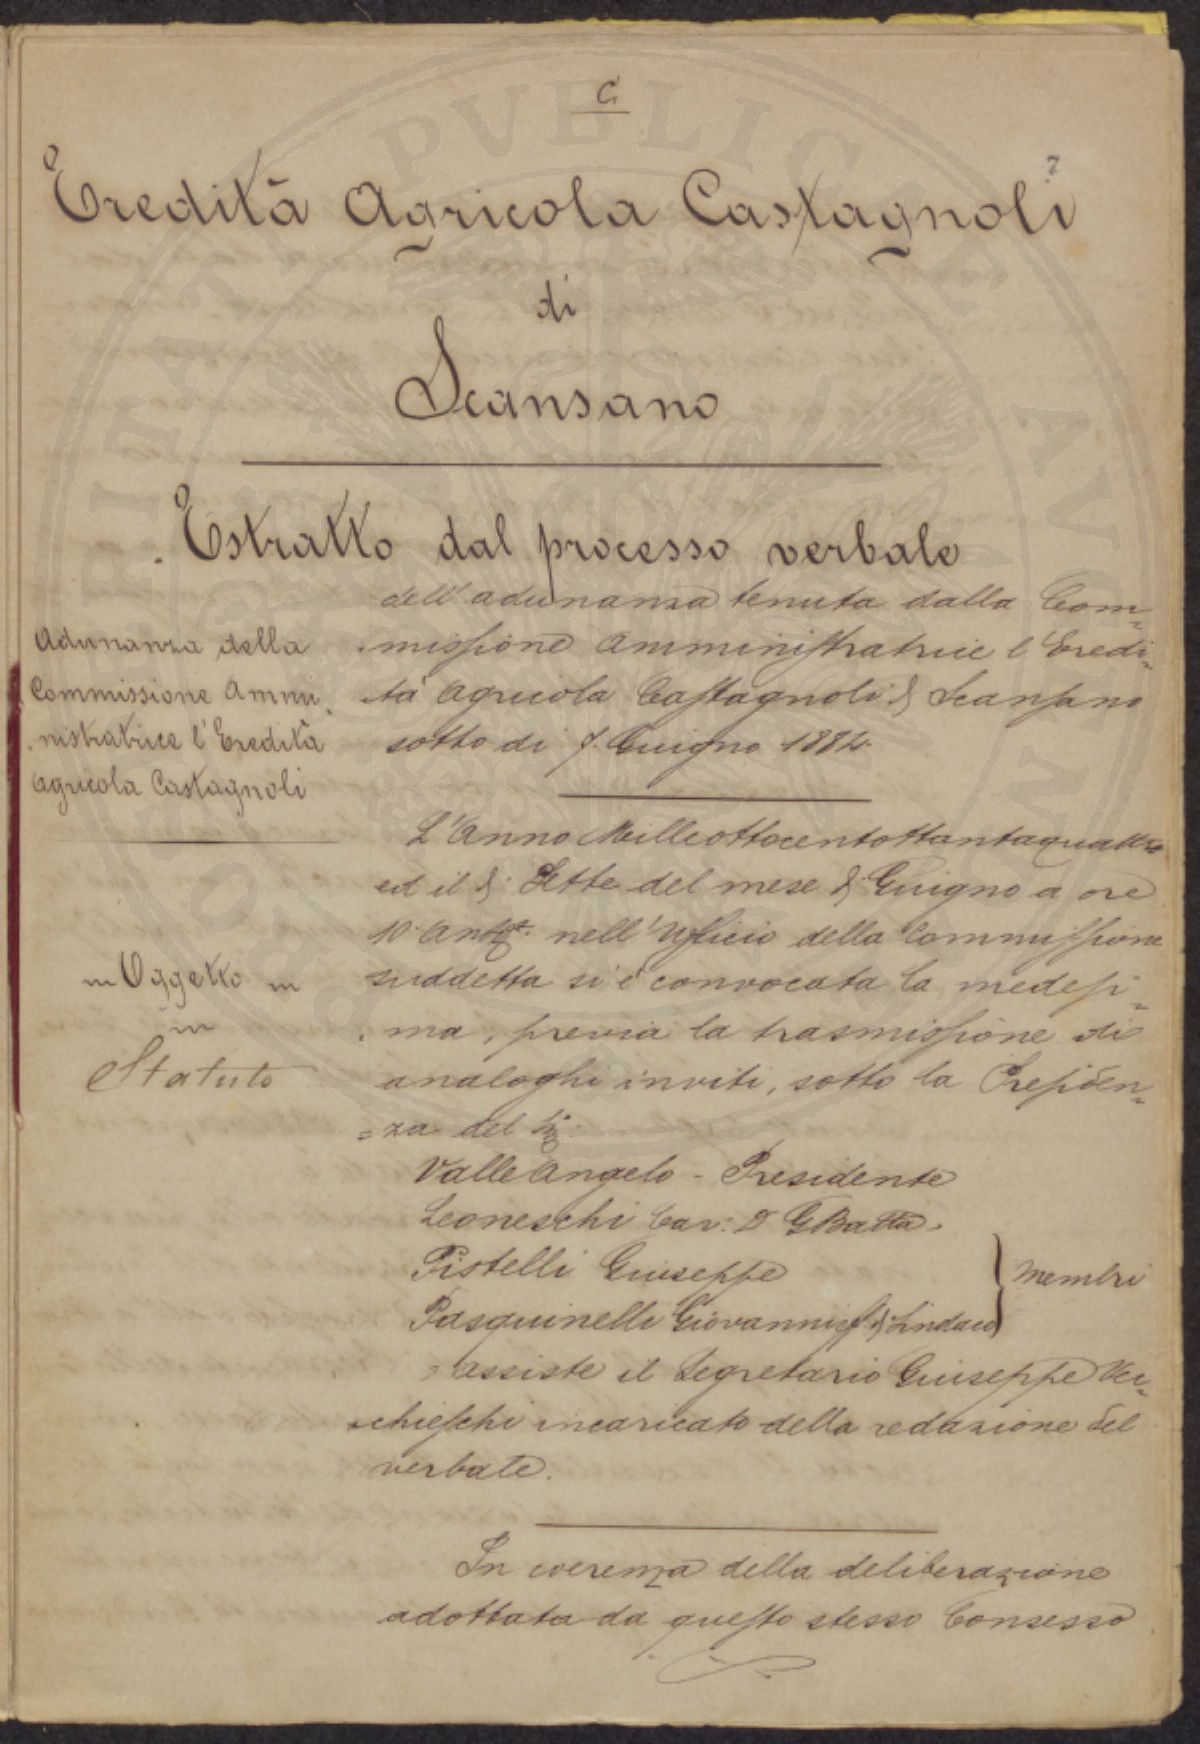 C
7
Eredità Agricola Castagnoli
di
Scansano
Estratto dal processo verbale
dell'adunanza tenuta dalla Com=
missione Amministratrice l'Eredi=
tà Agricola Castagnoli di Scansano
sotto di 7. Giugno 1884.
Adunanza della
Commissione Ammi
nistratrice l'Eredità
Agricola Castagnoli
L'Anno Milleottocentottantaquattro
ed il dì Sette del mese di Giugno a ore
10. Antᵉ. nell'Ufficio della Commissione
suddetta si è convocata la medesi=
ma, previa la trasmissione di
analoghi inviti, sotto la Presiden=
=za del Sig.
Oggetto
Statuto
Valle Angelo - Presidente
Leoneschi Cav: D GBatta.
Pistelli Giuseppe
Pasquinelli Giovanni ff di Sindaco
Membri
assiste il Segretario Giuseppe Vec=
chieschi incaricato della redazione del
verbale.
In coerenza della deliberazione
adottata da questo stesso Consesso